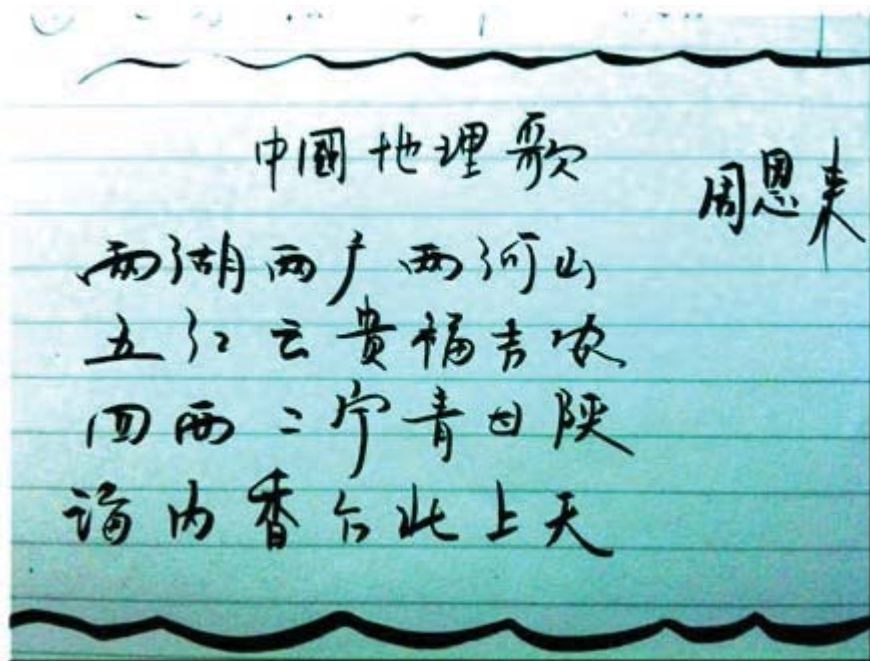 中國地理歌
周恩来
两湖两广两河山
五江云贵福吉安
四西二宁青甘陕
海内香台北上天